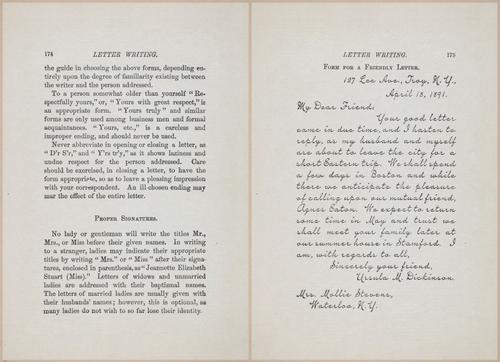 174 LETTER WRITING.
the guide in choosing the above forms, depending en-
tirely upon the degree of familiarity existing between
the writer and the person addressed.
To a person somewhat older than yourself "Re-
spectfully yours," or, "Yours with great respect," is
an appropriate form. "Yours truly" and similar
forms are only used among business men and formal
acquaintances. "Yours, etc., is a careless and
improper ending, and should never be used.
Never abbreviate in opening or closing a letter, as
"D'r S'r," and "Y'rs tr'y," as it shows laziness and
undue respect for the person addressed. Care
should be exercised, in closing a letter, to have the
form appropriate, so as to leave a pleasing impression
with your correspondent. An ill chosen ending may
mar the effect of the entire letter.
PROPER SIGNATURES.
No lady or gentleman will write the titles Mr.,
Mrs., or Miss before their given names. In writing
to a stranger, ladies may indicate their appropriate
titles by writing "Mrs." or "Miss" after their signa-
tures, enclosed in parenthesis, as "Jeannette Elizabeth
Stuart (Miss)." Letters of widows and unmarried
ladies are addressed with their baptismal names.
The letters of married ladies are usually given with
their husbands' names; however, this is optional, as
many ladies do not wish to so far lose their identity.
LETTER WRITING. 175
FORM FOR A FRIENDLY LETTER.
127 Lee Ave., Troy, N. Y.,
April 18, 1891.
My Dear Friend:
Your good letter
came in due time, and I hasten to
reply, as my husband and myself
are about to leave the city for a
short Eastern trip. We shall spend
a few days in Boston and while
there we anticipate the pleasure
of calling upon our mutual friend,
Agnes Eaton. We expect to return
some time in May and trust we
shall meet your family later at
our summer house in Stamford. I
am, with regards to all,
Sincerely your friend,
Ursula M. Dickinson.
Mrs. Mollie Stevens,
Waterloo, N. Y.